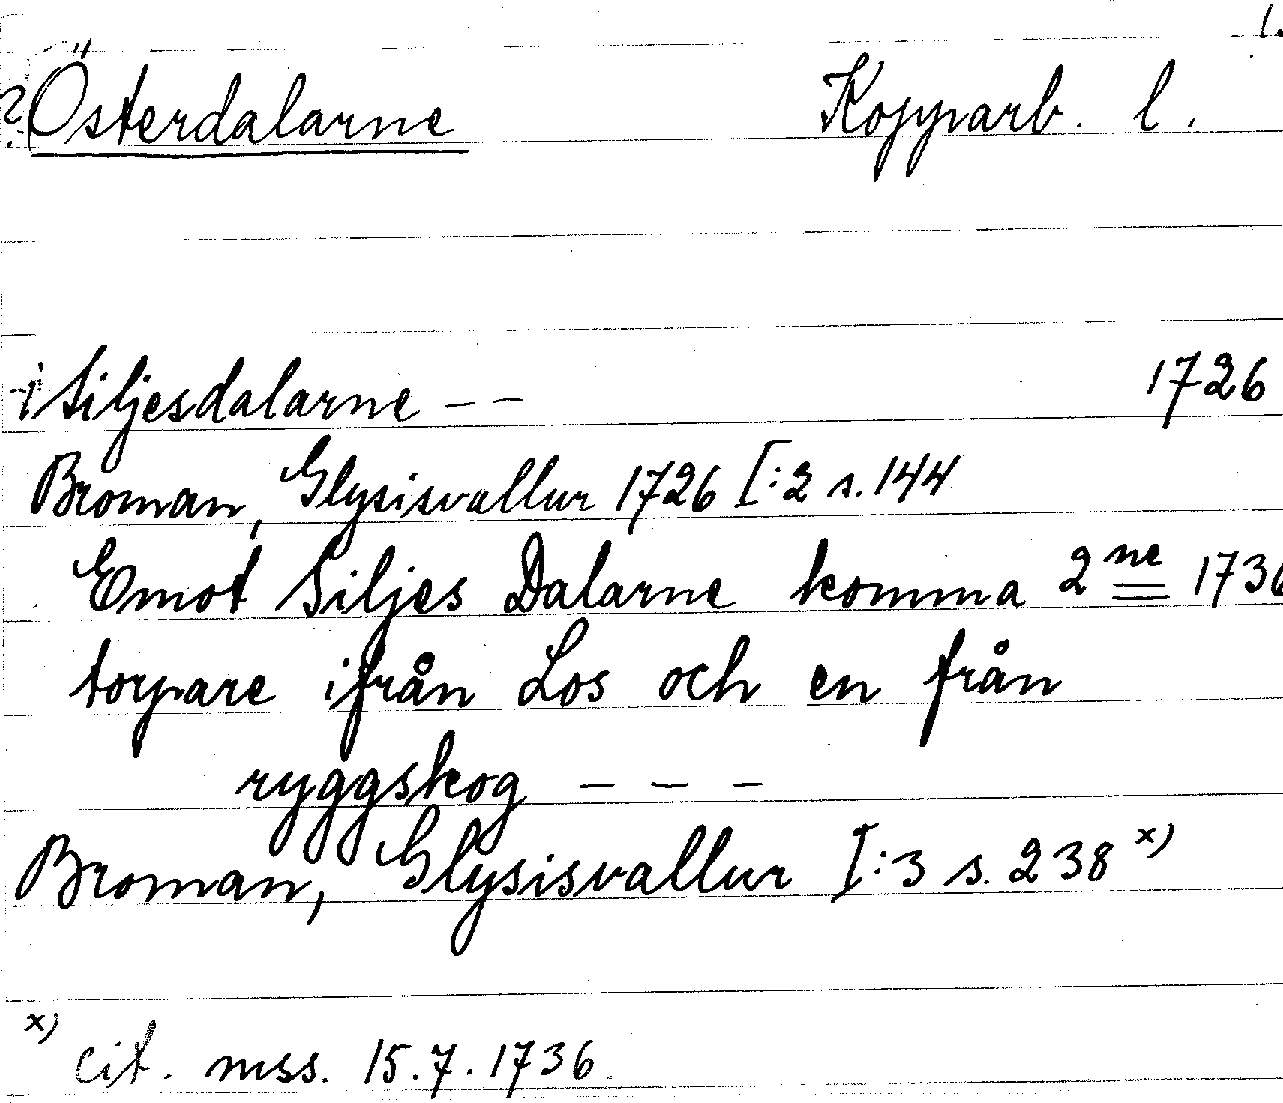 1.
? Österdalarne Kopparb. l.
i Siljesdalarne – – 1726
Broman, Glysisvallur 1726 I:2 s. 144
Emot Siljes Dalarne komma 2 ne 1736
torpare ifrån Los och en från
ryggskog – – –
Broman, Glysisvallur I:3 s. 238 x)
x) cit. mss. 15.7.1736